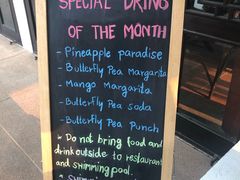 SPECIAL DRING
OF THE MONTH
- Pineapple paradise
- Butterfly Pea Margarita
- Mango Margarita
- Butterfly Pea soda
- Butterfly Pea Punch
* Do not bring food and
drink outside to restaurant
and swimming pool.